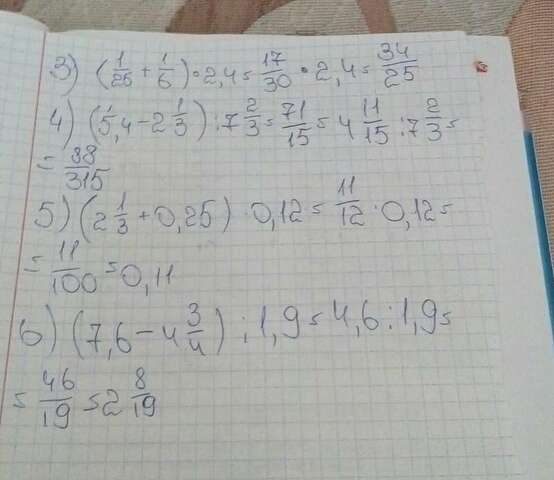 3) (1/25 + 1/6) · 2,4 = 17/30 · 2,4 = 34/25
4) (5,4 - 2 1/3) : 7 2/3 = 71/15 = 4 11/15 : 7 2/3 =
= 88/315
5) (2 1/3 + 0,25) · 0,12 = 11/12 · 0,12 =
= 11/100 = 0,11
6) (7,6 - 4 3/4) : 1,9 = 4,6 : 1,9 =
= 46/19 = 2 8/19